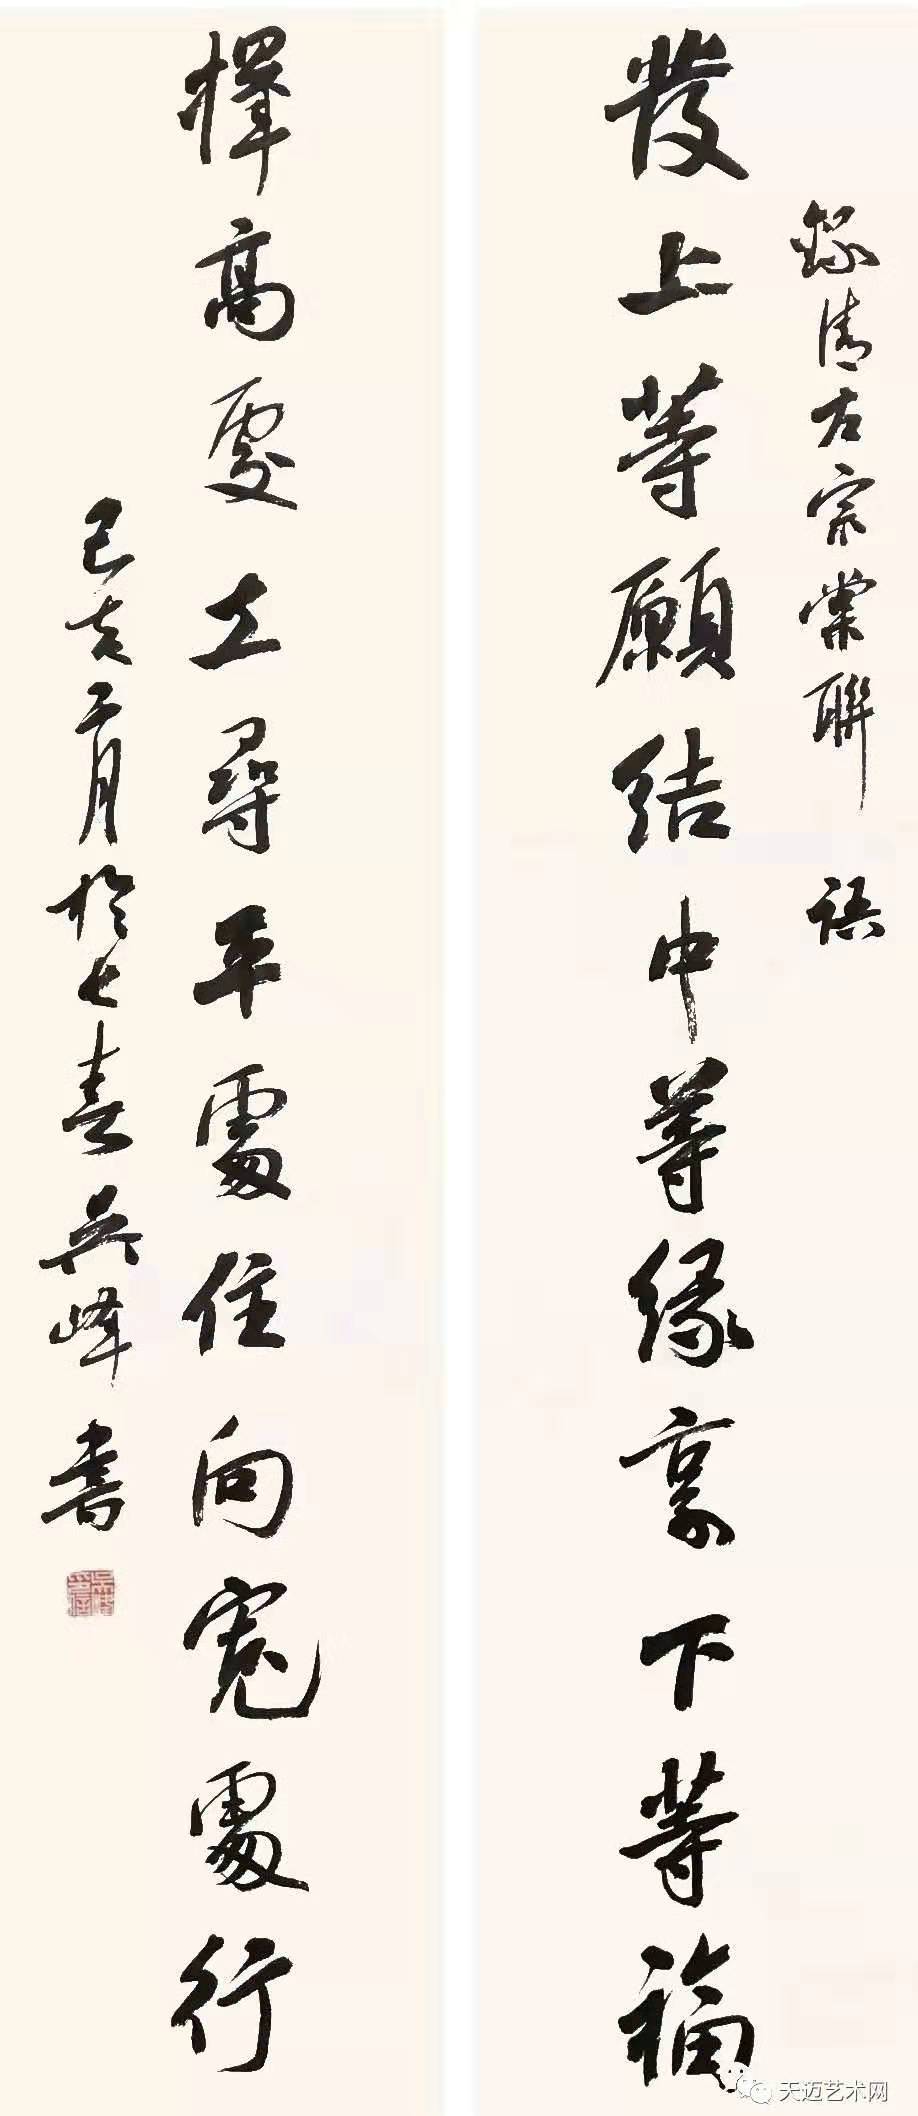 錄清左宗棠聯語
發上等願結中等緣享下等福
擇高處立尋平處住向寬處行
己亥二月於七喜吳峰書
天迈艺术网